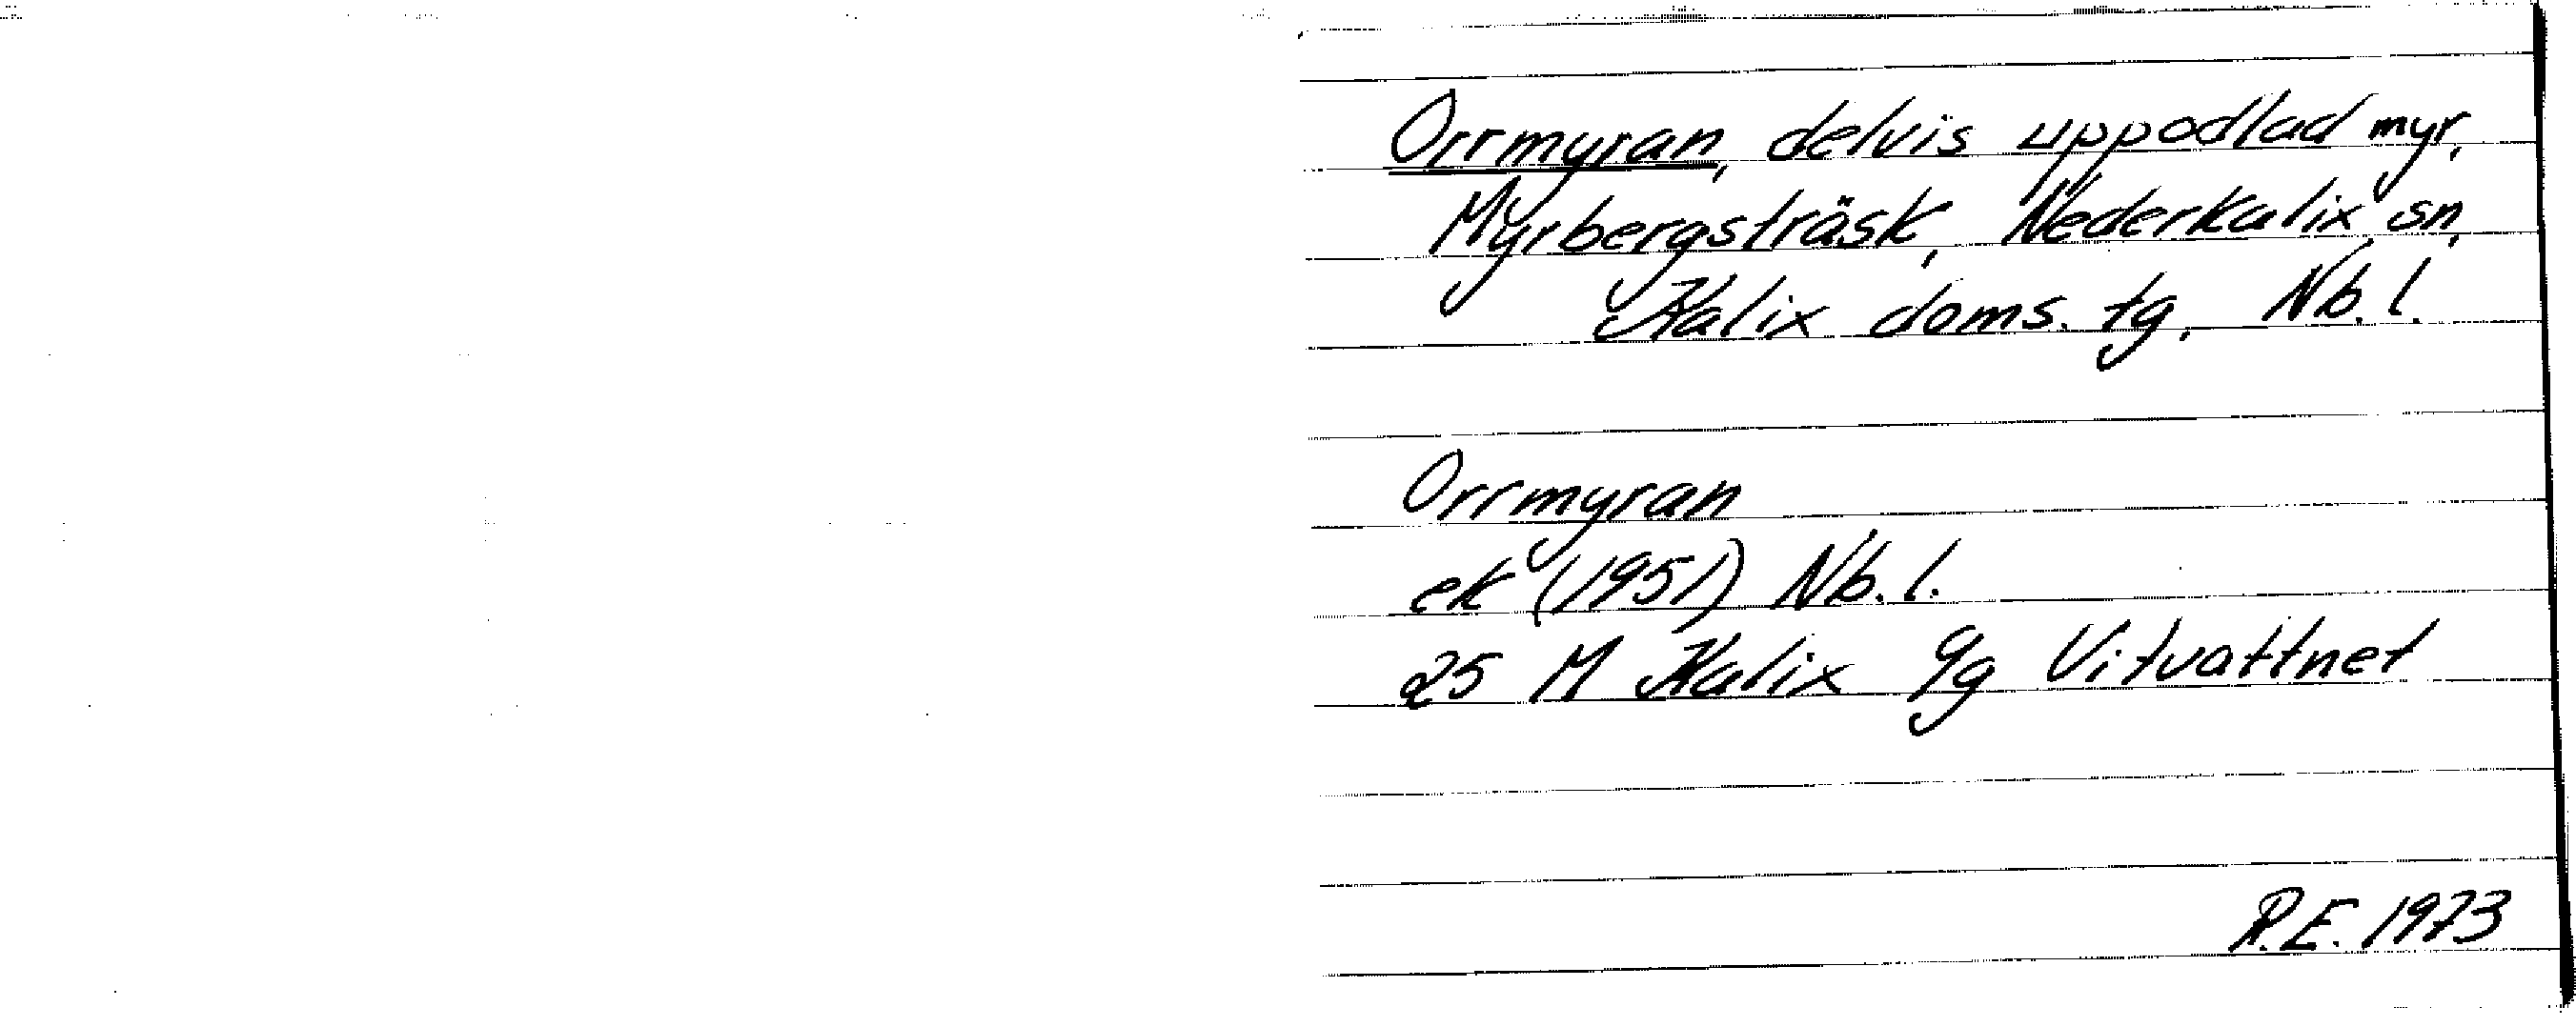 Orrmyran, delvis uppodlad myr,
Myrbergsträsk, Nederkalix sn,
Kalix doms. tg, Nb. l.
Orrmyran
ek (1951) Nb. l.
25 M Kalix 9g Vitvattnet
R.E. 1973